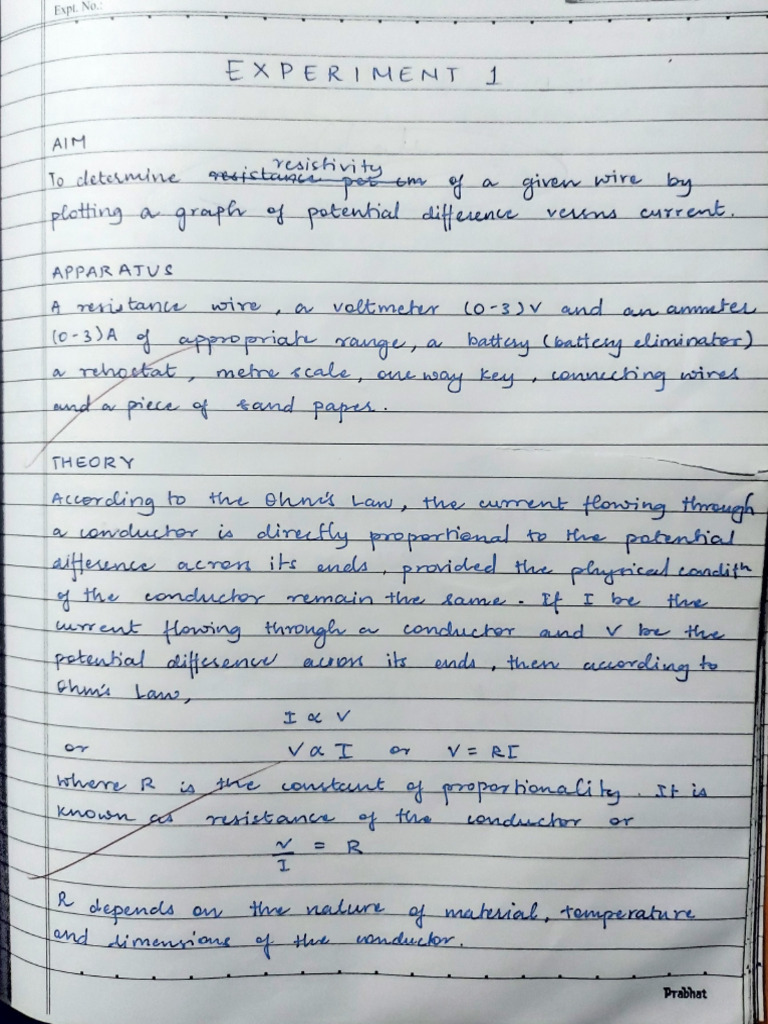 Expt. No.:
EXPERIMENT 1
AIM
resistivity
To determine resistance per cm of a given wire by
plotting a graph of potential difference versus current.
APPARATUS
A resistance wire, a voltmeter (0-3)V and an ammeter
(0-3)A of appropriate range, a battery (battery eliminator)
a rehostat, metre scale, one way key, connecting wires
and a piece of sand paper.
THEORY
According to the Ohm's Law, the current flowing through
a conductor is directly proportional to the potential
difference across its ends, provided the physical conditn
of the conductor remain the same. If I be the
current flowing through a conductor and V be the
potential difference across its ends, then according to
Ohm's Law,
I ∝ V
or V ∝ I or V = RI
where R is the constant of proportionality. It is
known as resistance of the conductor or
V/I = R
R depends on the nature of material, temperature
and dimensions of the conductor.
Prabhat